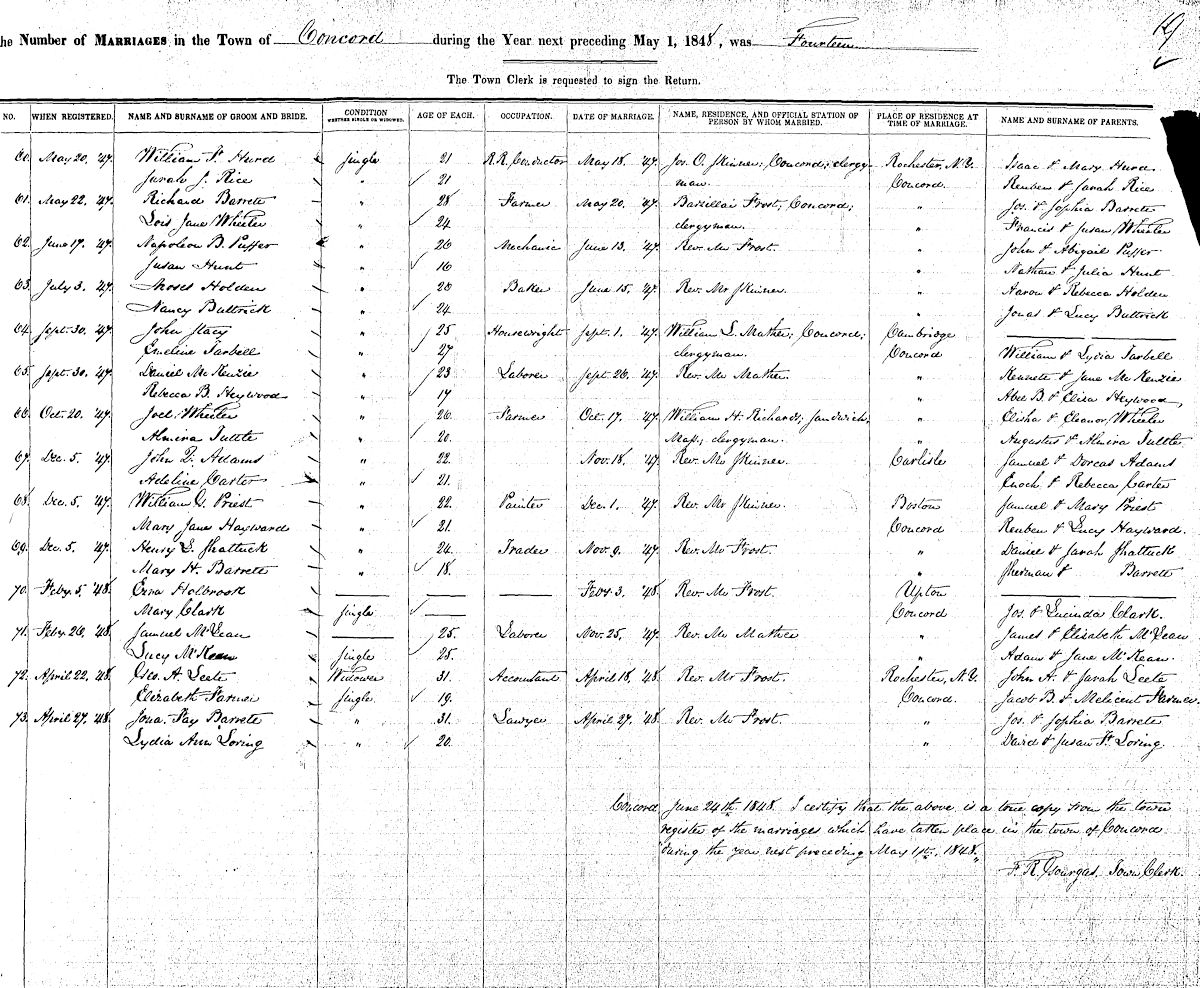 he Number of MARRIAGES in the Town of Concord during the Year next preceding May 1, 1848, was Fourteen
The Town Clerk is requested to sign the Return.
NO. WHEN REGISTERED. NAME AND SURNAME OF GROOM AND BRIDE. CONDITION WHETHER SINGLE OR WIDOWED. AGE OF EACH. OCCUPATION. DATE OF MARRIAGE. NAME, RESIDENCE, AND OFFICIAL STATION OF PERSON BY WHOM MARRIED. PLACE OF RESIDENCE AT TIME OF MARRIAGE. NAME AND SURNAME OF PARENTS.
60. May 20. '47. William F. Hurd Single 21 R.R. Conductor May 18. '47. Jos. O. Skinner; Concord; clergy- Rochester, N.Y. Isaac & Mary Hurd
Sarah J. Rice " 21 man. Concord. Reuben & Sarah Rice
61. May 22. '47. Richard Barrett " 28 Farmer May 20. '47. Barzillai Frost; Concord; " Jos. & Sophia Barrett
Lois Jane Wheeler " 24 clergyman. " Francis & Susan Wheeler
62. June 17. '47. Napoleon B. Puffer " 26 Mechanic June 13. '47. Rev. Mr Frost. " John & Abigail Puffer
Susan Hunt " 16 " Nathan & Julia Hunt
63. July 3. '47. Moses Holden " 28 Baker June 15. '47. Rev. Mr Skinner. " Aaron & Rebecca Holden
Nancy Buttrick " 24 " Jonas & Lucy Buttrick
64. Sept. 30. '47. John Stacy " 25 Housewright Sept. 1. '47. William L. Mather; Concord; Cambridge
Emeline Tarbell " 27 clergyman. Concord William & Lydia Tarbell
65. Sept. 30. '47. Daniel McKenzie " 23 Laborer Sept. 26. '47. Rev. Mr Mather. " Kennete & Jane McKenzie
Rebecca B. Heywood " 17 " Abel B. & Eliza Heywood
66. Oct. 20. '47. Joel Wheeler " 26. Farmer Oct. 17. '47. William H. Richards; Sandwich, " Elisha & Eleanor Wheeler
Almira Tuttle " 20. Mass., clergyman. " Augustus & Almira Tuttle
67. Dec. 5. '47. John Q. Adams " 22. Nov. 18. '47. Rev. Mr Skinner. Carlisle Samuel & Dorcas Adams
Adeline Carter " 21. Enoch & Rebecca Carter
68. Dec. 5. '47. William G. Priest " 22. Painter Dec. 1. '47. Rev. Mr Skinner. Boston Samuel & Mary Priest
Mary Jane Hayward " 21. Concord Reuben & Lucy Hayward.
69. Dec. 5. '47. Henry L. Shattuck " 24. Trader Nov. 9. '47. Rev. Mr Frost. " Daniel & Sarah Shattuck
Mary H. Barrett " 18. " Sherman & Barrett
70. Feby. 5. '48. Ezra Holbrook Feby. 3. '48. Rev. Mr Frost. Upton
Mary Clark Single Concord Jos. & Lucinda Clark.
71. Feby. 26. '48. Samuel McLean 25. Laborer Nov. 25. '47. Rev. Mr Mather " James & Elisabeth McLean
Lucy McKean Single 25. " Adam & Jane McKean.
72. April 22. '48. Geo. A. Leete Widower 31. Accountant April 18. '48. Rev. Mr Frost. Rochester, N.Y. John A. & Sarah Leete
Elizabeth Farmer Single 19. Concord. Jacob B. & Melicent Farmer
73. April 27. '48. Jona. Fay Barrett " 31. Lawyer April 27. '48. Rev. Mr Frost. " Jos. & Sophia Barrett
Lydia Ann Loring " 20. " David & Susan F. Loring.
Concord June 24th 1848. I certify that the above is a true copy from the town
register of the marriages which have taken place in the town of Concord
during the year next preceding May 1st. 1848.
Town Clerk.